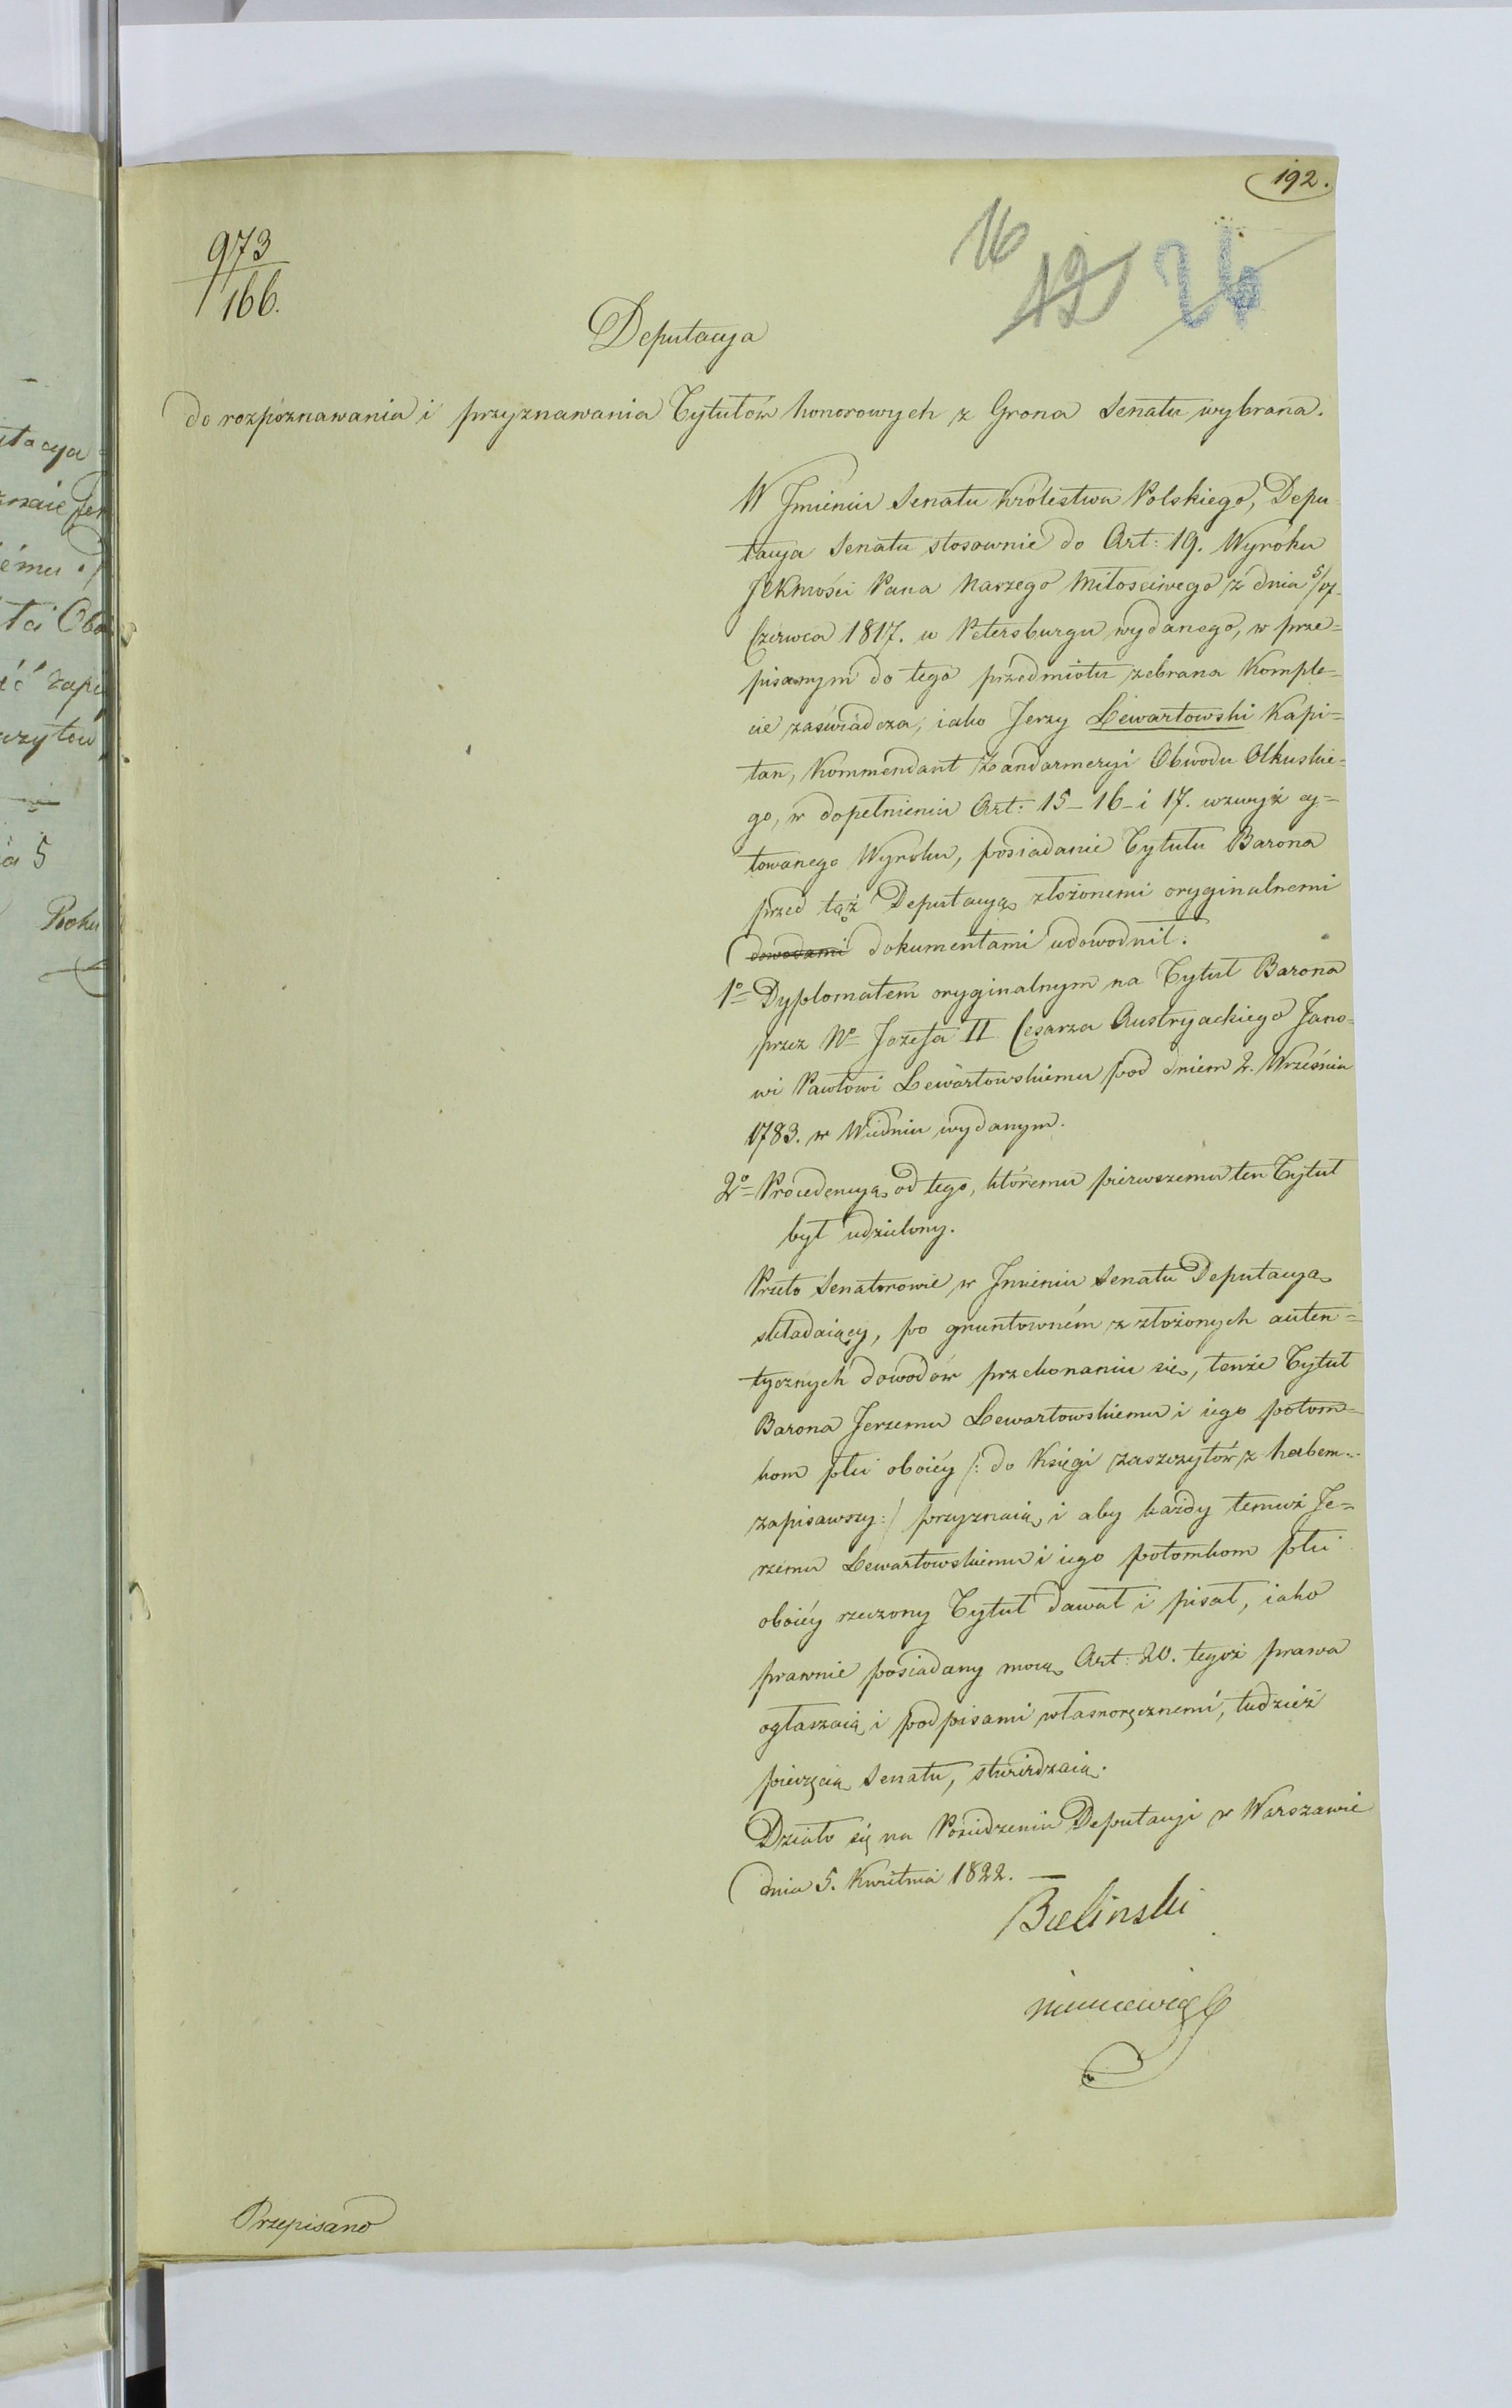 192.
973
166.
16
12
26
Deputacya
do rozpoznawania i przyznawania Tytułów honorowych z Grona Senatu wybrana.
W Jmieniu Senatu Królestwa Polskiego, Depu
tacya Senatu stosownie do Art: 19. Wyroku
JCKMości Pana Naszego Miłosciwego z dnia 5/17
Czerwca 1817. w Petersburgu wydanego, w prze=
pisanym do tego przedmiotu zebrana Komple=
cie zaświadcza, iako Jerzy Lewartowski Kapi=
tan, Kommendant Żandarmeryi Obwodu Olkuskie=
go, w dopełnieniu Art: 15-16-i 17. wzwyż cy=
towanego Wyroku, posiadanie Tytułu Barona
przed tąż Deputacyą złożonemi oryginalnemi
dowodami dokumentami udowodnił.
1o= Dyplomatem oryginalnym na Tytuł Barona
przez No Jozefa II Cesarza Austryackiego Jano=
wi Pawłowi Lewartowskiemu pod dniem 2. Września
1783. w Wiedniu wydanym.
2o= Procedencyą od tego, któremu pierwszemu ten Tytuł
był udzielony.
Przeto Senatorowie w Jmieniu Senatu Deputacyą
składaiący, po gruntowném z złożonych auten=
tycznych dowodów przekonaniu się, tenże Tytuł
Barona Jerzemu Lewartowskiemu i iego potom=
kom płci oboiéy /: do Księgi zaszczytów z herbem
zapisawszy:/ przyznaią, i aby każdy temuż Je=
rzemu Lewartowskiemu i iego potomkom płci
oboiéy rzeczony Tytuł dawał i pisał, iako
prawnie posiadany mocą Art: 20. tegoż prawa
ogłaszaią, i podpisami własnoręcznemi, tudzież
pieczęcią Senatu, stwierdzaią.
Działo się na Posiedzeniu Deputacyi w Warszawie
dnia 5. Kwietnia 1822.
Bielinski
Niemcewicz
Przepisano
tacya
znaie Jer
ému
ić zapi
szczytow
ia 5
Roku